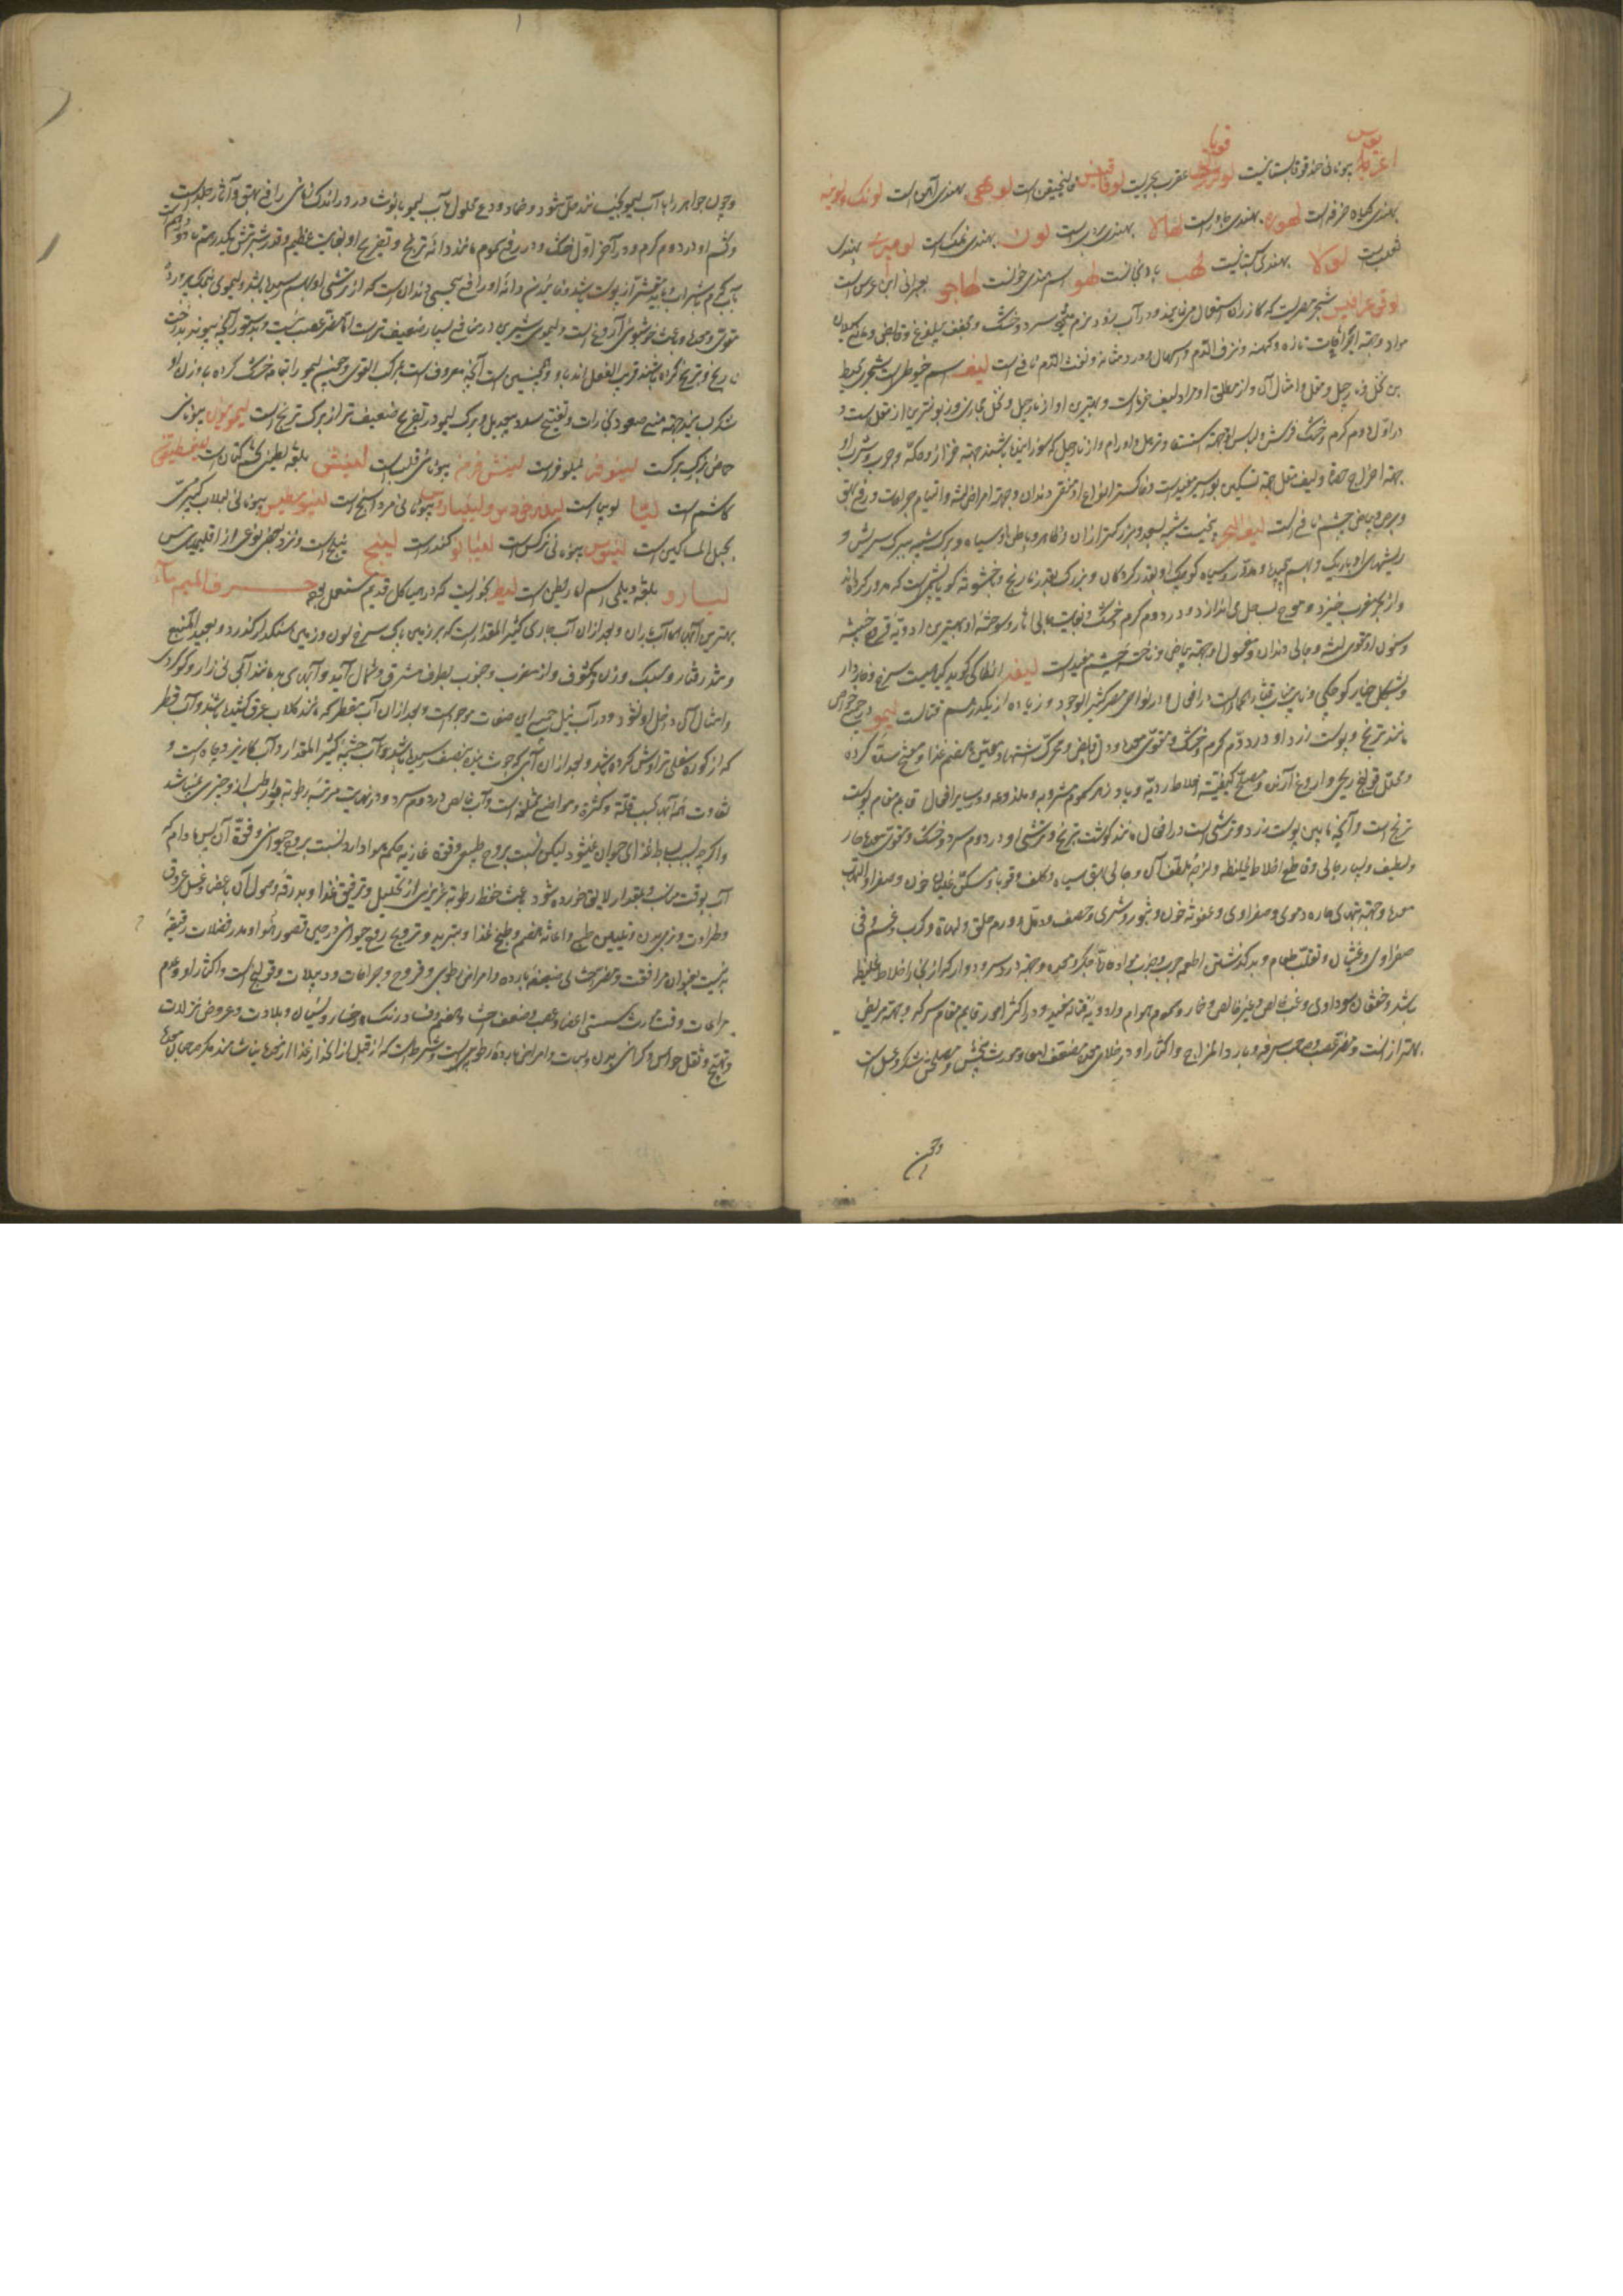 اغریا بیونانی حندقوقا بستانیست لوفرسافی عقرب بحریست لوقاقینس مانجیقن است لوهی بهندی آهن است لونک ولونیه
بهندی کیاه خرفه است لهوره بهندی جاورس است لهالا بهندی است لون بهندی نمک است لومری بهندی
ثعلب است لولا بهندی لهب بادنجانست لهو اسم هندی خولنست لهاجو بعبرانی ابن عرس است
لوقی غرافیس حجر مصریست که کازران استعمال می نمایند و در آب زود نرم میشود سرد و خشک و مجفف بیلذع و قابض و مانع سیلان
مواد و جهة جراحات تازه و کهنه و نزف الدم و اسهال و درد مثانه و نفث الدم نافع است لیف اسم خیوطی است شجری محیط
بن نخل و نارجیل و مقل و امثال آن و از مطلق او مراد لیف خرماست و بهترین او از نارجیل و نخل حجازی و زبونترین از مقل است و
در اول دوم کرم و خشک فرش و لباس او جهة استسقا و ترهل و اورام و از نارجیل که سوراخها باشند جهة حزاز و حکه و جرب و شرب او
جهة اخراج حصاة و لیف مقل جهة تسکین بواسیر مفیدست و خاکستر انواع او منقی دندان و جهة امراض لثه و التیام جراحات و رفع بهق
و برص و بیاض چشم نافع است لیف البحر بیخیست شبیه بسعد و بزرکتر از آن و ظاهر و باطن او سیاه و برک شبیه ببرک سریش و
ریشهای او باریک و بهم پیچیده و مدور و سیاه کوچک او بقدر کردکان و بزرک بقدر نارنج و باخشونة کویا پشمی است که مدور کرده اند
و از بحر مغرب خیزد و موج بساحل می اندازد و در دوم کرم و خشک و بغایت جالی اثار و سوخته او بهترین ادویه قرحه خبیثه
و سنون او مقوی لثه و جالی دندان و مغسول او جهة بیاض و ناخنه چشم مفیدست لیفه انطاکی کوید کیاهیست سرخ و خاردار
و بشکل خیار کوچکی و نایب مناب قثاء الحمارست در افعال و در نواحی مصر کثیر الوجود و زیاده از یکدرهم قتالست لیمو درجمیع خواص
مانند ترنج و پوست زرد او در دوم کرم و خشک و مقوی معده و دل قابض و محرک اشتها و معین هضم غذا و مفتح سده کرده
و محلل قولنج ریحی و اروغ آرنده و مصلح کیفیته اخلاط ردیه و پادزهر سموم مشروبه و ملذوعه و در سایر افعال قایم مقام پوست
ترنج است و آنچه مابین پوست زرد و ترشی است در افعال مانند کوشت ترنج و ترشی او در دوم سرد و خشک و مقوی معده حار
و لطیف و بسیار جالی و قاطع اخلاط غلیظه و لزجه و ملطف آن و جالی بهق سیاه و کلف و قوبا و مسکن غلیان خون و صفرا و التهاب
معده و جهة تبهای حاره دموی و صفراوی و عفونة خون و بثور و شری و حصف و دمل و ورم حلق و لهاة و کرب و غم و قی
صفراوی و غثیان و تقلب طعام و بد کذشتن اطعمه چرب و جذب مواده تا جکر و معده و جهة درد سر و دوار که از بخار اخلاط غلیظ
باشد و خفقان سوداوی و غب خالص و غیر خالص و خمار و سموم هوام و ادویه قتاله مفید و در اکثر امور قایم مقام سرکه و جهة مریض
بهتر از است و مضر عصب و صاحب سرفه و بارد المزاج و اکثار او در خلای معده مضعف امعا و مورث مغص و مصلحش شکر و عسل است
وچون
وچون جواهر را با آب لیمو بجنبانند حل شود و ضماد ودع محلول در آب لیمو با نوشادر در اندک زمانی رافع بهق و آثار جلد است
و تخم او در دوم کرم و در آخر اول خشک و در رفع سموم مانند دانه ترنج و تفریح او بغایت عظیم و قدر شربتش یکدرم تا دو درهم است
بآب کرم یا شراب و باید مقشر از پوست باشد و خائیدن دانه او رافع بیحسی دندان است که از ترشی او بهم رسیده باشد و لیموی نمک پرورده
مقوی معده و باعث خوشبوئی آروغ است و لیموی شیرین در منافع بسیار ضعیف ترست اما مضر عصب نیست و بدستور آنچه پیوند بدرخت
نارنج و ترنج کرده باشند قریب الفعل اند باو و همچنین است آنچه معروف است بمرکب القوی و چون لیمو را تمام خشک کرده با وزن او
شکر بسایند جهة منع صعود بخارات و تفتیح سدد بیعدیل و برک لیمو در تفریح ضعیف تر از برک ترنج است لیمونیون بیونانی
حماض بزرک برکست لینوفر نیلوفرست لینش فرم بیونانی قلب است لینش بلغة لطینی تخم کتان است لیقسطیقن
کاشم است لیتا لوبیا است لیدرخودس ولیثارس بیونانی مرداسنج است لیوسطیس بیونانی لبلاب کبیر حتی
بحبل المساکین است لینوس بیونانی نرکس است لعیانو کندرست لینج نیلج است و نزد بعضی نوعی از اقلیمیای مس
لیبارو بلغة دیلمی اسم لسان بطین است لیط بخوریست که در هیاکل قدیم مستعمل بوده حرف المیم ماء
بهترین آبها آب باران و بعد از آن آب جاری کثیر المقدارست که بر زمین پاک سرخ لون و زمین سنکدار کذرد و بعید المنبع
و تند رفتار و سبک وزن و مکشوف و از مغرب و جنوب بطرف مشرق و شمال آید و آبهای بد مانند آبی نی زار و کوکردی
و امثال آن داخل او نشود و در آب نیل جمیع این صفات موجود است و بعد از آن آب مقطر که مانند کلاب عرق کشیده باشند و آب قطر
که از کوزه سفالی تراوش کرده باشد و بعد از آن آبی که جوشانیده بنصف رسیده باشد و آب چشمه کثیر المقدار و آب کاریز و چاه است و
تفاوت همه آبها بسبب قلة و کثرة و مواضع مختلفه است و آب خالص در دوم سرد و در نهایت مرتبه رطوبة و ارطب از و چیزی نمیباشد
واکرچه بسبب بساطة غذای حیوان نمیشود لیکن نسبت بروح طبیعی و قوة غاذیه حکم هوا دارد نسبت بروح حیوانی و قوة آن پس مادام که
آب بوقت مناسب و بمقدار لایق خورده شود باعث حفظ رطوبة غریزی از تحلیل و ترقیق غذا و بدرقه وصول آن باعضا و غسل عروق
و طراوت و نرمی بدن و تلیین طبع و اعانة هضم و طبخ غذا و تبرید و ترویح روح حیوانی در حین قصور هوا و مدر فضلات رقیقه
و مضر احشای ضعیفه بارده و امراض رطوبی و قروح و جراحات و دبیلات و قولنج است و اکثار او و عدم
مراعات وقت مورث سستی اعضا و عصب و ضعف احشا و هضم و فساد رنک رخسار و نسیان و بلادت و عروض نزلات
و تهیج و ثقل حواس و کرانی بدن و سبات و امراض بارده رطوبیست و شرط است که از قبل از انحدار غذا از معده نیاشامند مکر صاحبان معده